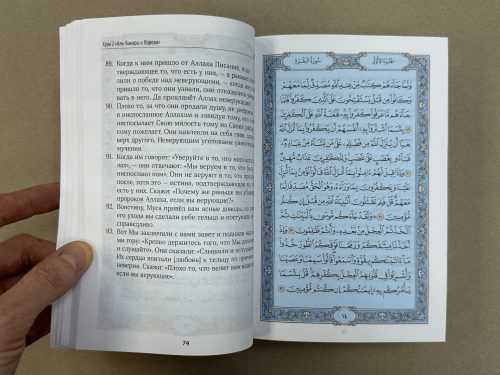 Сура 2 «Аль-Бакара» — Корова»
89. Когда к ним пришло от Аллаха Писание, под-
тверждающее то, что есть у них, — а раньше
они молили о победе над неверующими, — когда же к ним
пришло то, что они узнали, они отказались
вать в него. Да проклянёт Аллах неверующих!
90. Плохо то, за что они продали душу, не веруя
в ниспосланное Аллахом и завидуя тому, что
ниспосылает Свою милость тому из Своих рабов,
кому пожелает. Они навлекли на себя гнев, один
вслед другого. Неверующим уготованы унизительные
мучения.
91. Когда им говорят: «Уверуйте в то, что ниспослал
лах», — они отвечают: «Мы веруем в то, что
ниспослано нам». Они не веруют в то, что пришло
после, хотя это — истина, подтверждающая то,
есть у них. Скажи: «Почему же раньше вы убивали
пророков Аллаха, если вы верующие?»
92. Воистину, Муса привёл вам ясные доводы, но
его ухода вы сделали себе тельца и поступили
справедливо.
93. Вот Мы заключили с вами завет и подняли над
ми гору: «Крепко держитесь того, что Мы даровали
и слушайте». Они сказали: «Слышали и ослушались».
Их сердца впитали [любовь] к тельцу по причине
неверия. Скажи: «Плохо то, что велит вам ваша
если вы верующие».
74
الجزء الأول
سورة البقرة
وَلَمَّا جَاءَهُمْ كِتَابٌ مِّنْ عِندِ اللَّهِ مُصَدِّقٌ لِّمَا مَعَهُمْ
وَكَانُوا مِن قَبْلُ يَسْتَفْتِحُونَ عَلَى الَّذِينَ كَفَرُوا فَلَمَّا
جَاءَهُم مَّا عَرَفُوا كَفَرُوا بِهِ فَلَعْنَةُ اللَّهِ عَلَى الْكَافِرِينَ
٨٩ بِئْسَمَا اشْتَرَوْا بِهِ أَنفُسَهُمْ أَن يَكْفُرُوا بِمَا أَنزَلَ اللَّهُ
بَغْيًا أَن يُنَزِّلَ اللَّهُ مِن فَضْلِهِ عَلَىٰ مَن يَشَاءُ مِنْ عِبَادِهِ
فَبَاءُو بِغَضَبٍ عَلَىٰ غَضَبٍ وَلِلْكَافِرِينَ عَذَابٌ مُّهِينٌ ٩٠
وَإِذَا قِيلَ لَهُمْ آمِنُوا بِمَا أَنزَلَ اللَّهُ قَالُوا نُؤْمِنُ بِمَا أُنزِلَ
عَلَيْنَا وَيَكْفُرُونَ بِمَا وَرَاءَهُ وَهُوَ الْحَقُّ مُصَدِّقًا لِّمَا مَعَهُمْ
قُلْ فَلِمَ تَقْتُلُونَ أَنبِيَاءَ اللَّهِ مِن قَبْلُ إِن كُنتُم
مُّؤْمِنِينَ ٩١ وَلَقَدْ جَاءَكُم مُّوسَىٰ بِالْبَيِّنَاتِ ثُمَّ
اتَّخَذْتُمُ الْعِجْلَ مِن بَعْدِهِ وَأَنتُمْ ظَالِمُونَ ٩٢ وَإِذْ
أَخَذْنَا مِيثَاقَكُمْ وَرَفَعْنَا فَوْقَكُمُ الطُّورَ خُذُوا مَا
آتَيْنَاكُم بِقُوَّةٍ وَاسْمَعُوا قَالُوا سَمِعْنَا وَعَصَيْنَا
وَأُشْرِبُوا فِي قُلُوبِهِمُ الْعِجْلَ بِكُفْرِهِمْ قُلْ بِئْسَمَا
يَأْمُرُكُم بِهِ إِيمَانُكُمْ إِن كُنتُم مُّؤْمِنِينَ ٩٣
١٤